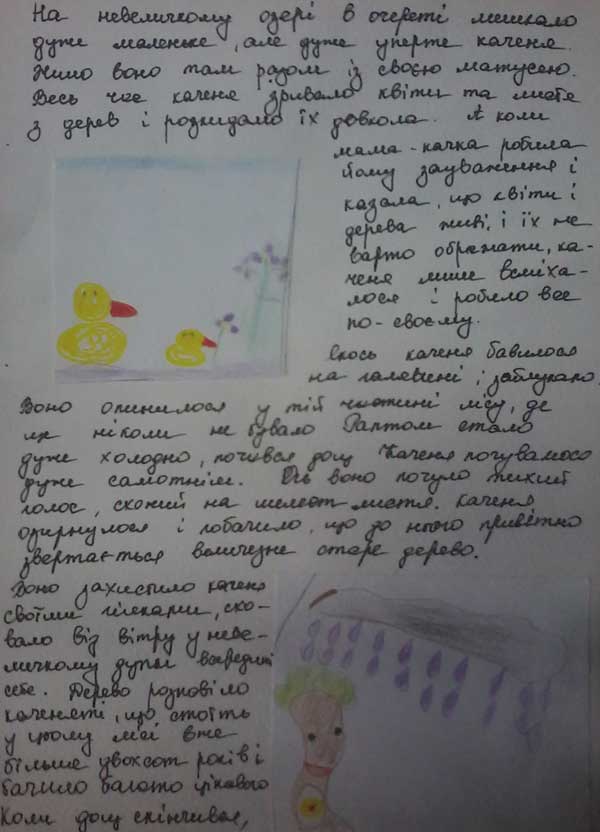 На невеличкому озері в очереті мешкало
дуже маленьке, але дуже уперте каченя.
Жило воно там разом із своєю матусею.
Весь час каченя зривало квіти та листя
з дерев і розкидало їх довкола. А коли
мама-качка робила
йому зауваження і
казала, що квіти і
дерева живі, і їх не
варто ображати, ка-
ченя лише всміха-
лося і робило все
по-своєму.
Якось каченя бавилося
на галявині і заблукало.
Воно опинилося у тій частині лісу, де
ще ніколи не бувало. Раптом стало
дуже холодно, почався дощ. Каченя почувалося
дуже самотнім. Ось воно почуло тихий
голос, схожий на шелест листя. Каченя
озирнулося і побачило, що до нього привітно
звертається величезне старе дерево.
Воно захистило каченя
своїми гілками, схо-
вало від вітру у неве-
личкому дуплі всередині
себе. Дерево розповіло
каченяті, що стоїть
у цьому лісі вже
більше двохсот років і
бачило багато цікавого
Коли дощ скінчився,